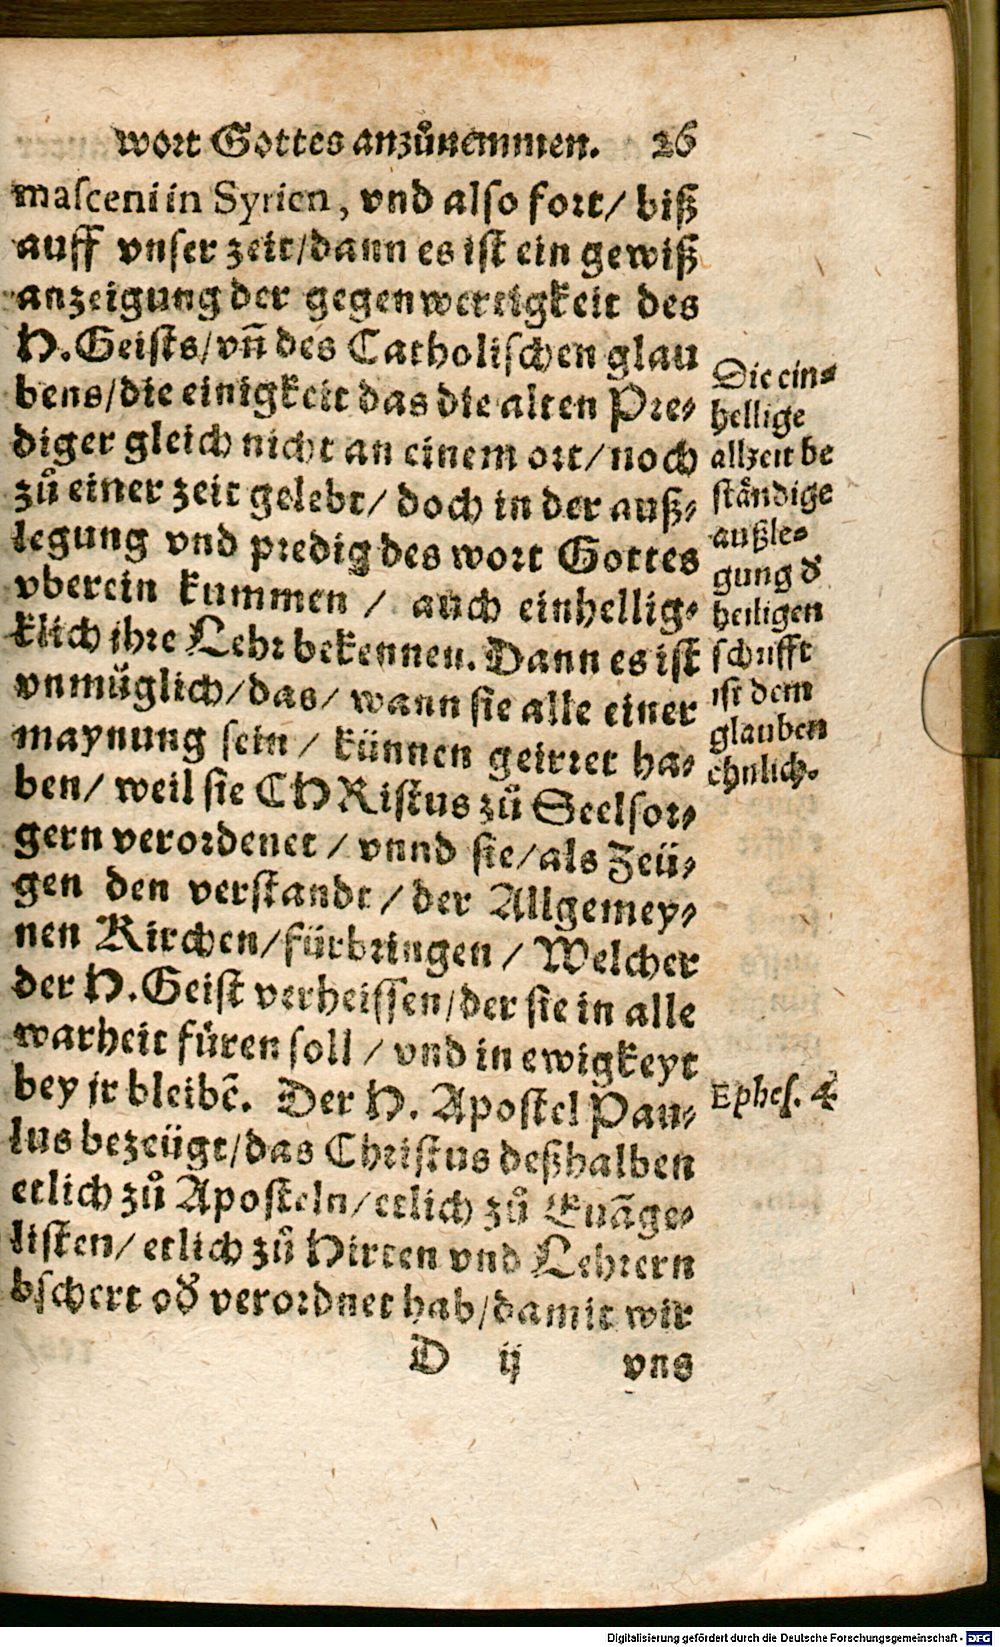 wort Gottes anzůnemmen. 26
masceni in Syrien, vnd also fort/ biß
auff vnser zeit/dann es ist ein gewiß
anzeigung der gegenwertigkeit des
H. Geists/vñ des Catholischen glau
bens/die einigkeit das die alten Pre-
diger gleich nicht an einem ort/noch
zů einer zeit gelebt/ doch in der auß-
legung vnd predig des wort Gottes
vberein kummen / auch einhellig-
klich ihre Lehr bekennen. Dann es ist
vnmüglich/das/ wann sie alle einer
maynung sein / künnen geirret ha-
ben/ weil sie CHRistus zů Seelsor-
gern verordenet / vnnd sie/als Zeü-
gen den verstandt / der Allgemey-
nen Kirchen/fürbringen / Welcher
der H. Geist verheissen/der sie in alle
warheit füren soll / vnd in ewigkeyt
bey jr bleibẽ. Der H. Apostel Pau-
lus bezeügt/das Christus deßhalben
etlich zů Aposteln/etlich zů Euãge-
listen/ etlich zů Hirten vnd Lehrern
bschert od̕ verordnet hab/damit wir
D ij vns
Die ein-
hellige
allzeit be
ständige
außle-
gung d̕
heiligen
schrifft
ist dem
glauben
ehnlich.
Ephes. 4.
Digitalisierung gefördert durch die Deutsche Forschungsgemeinschaft - DFG